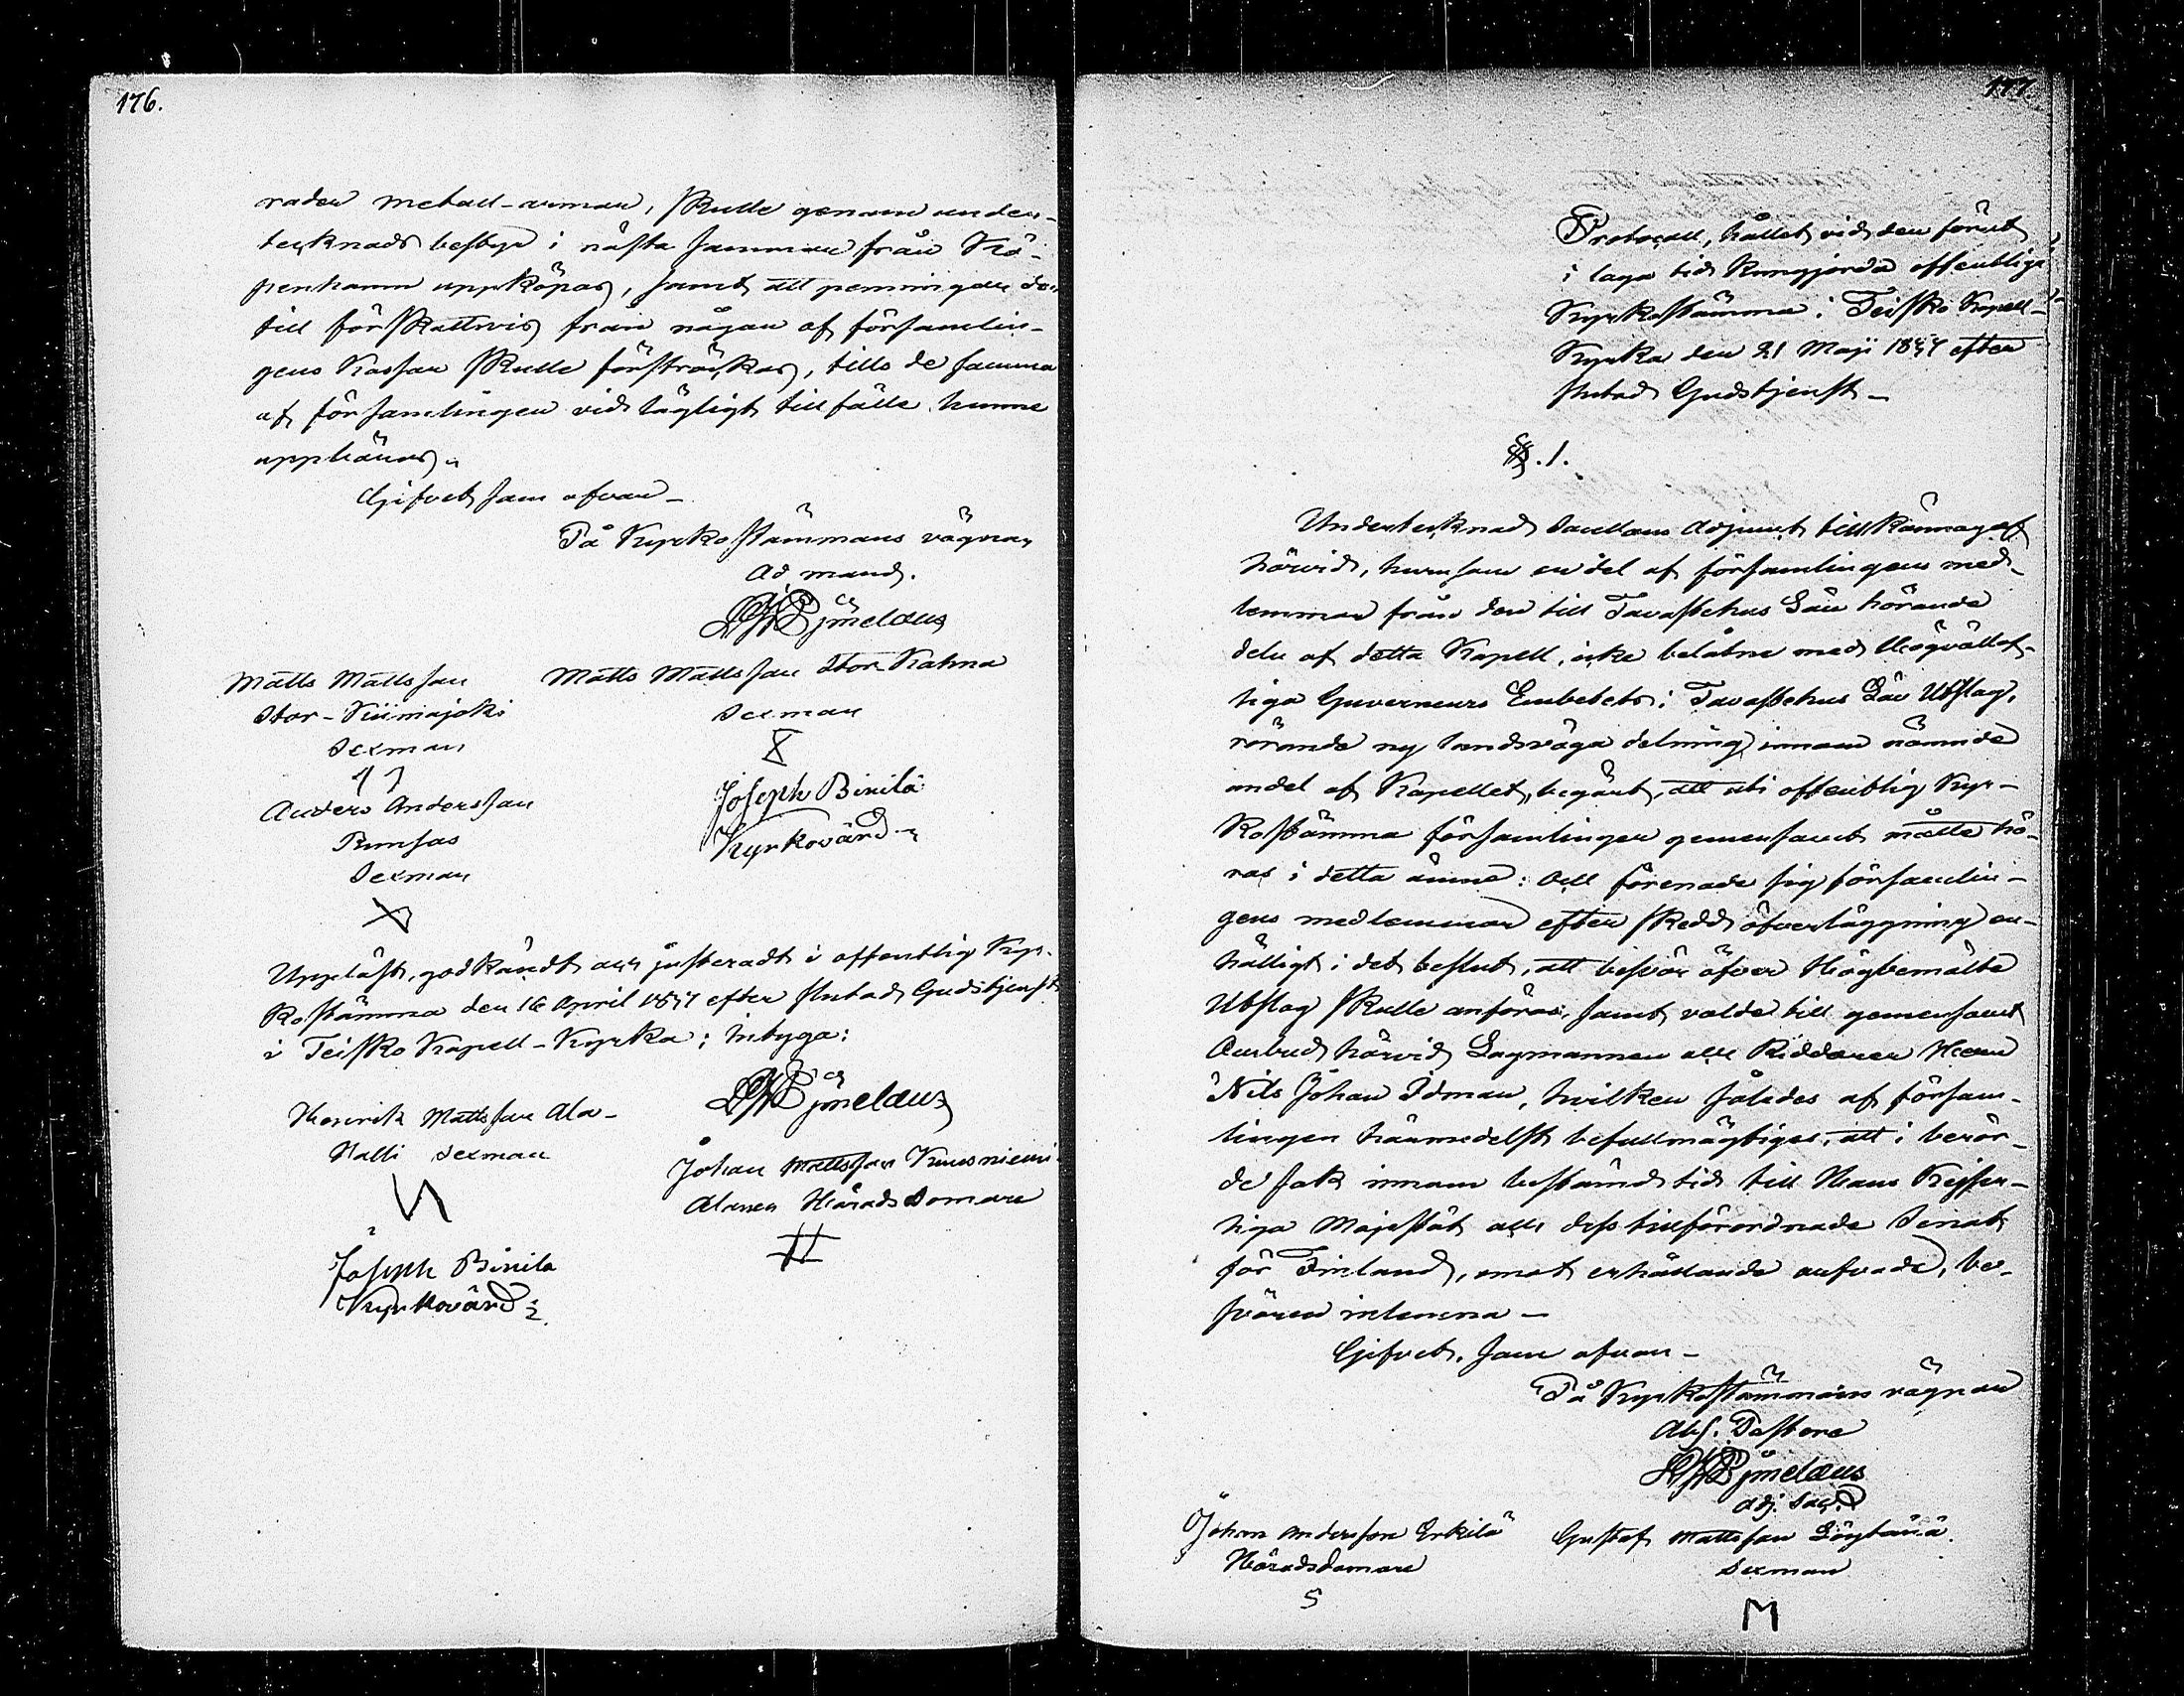 176.
rader metall-armar, skulle genom under-
tecknads bestyr i nästa sommar från Kö-
penhamn uppköpas, samt att penningar der
till förskottsvis från någon af församlin-
gens Kassar skulle försträckas, tills de samma
af församlingen vid lägligt tillfälle hunne
uppbäras.
Gifvet som ofvan_
På Kyrkostämmans vägnar
Ad mand.
Matts Mattsson
Stor-Kiimajoki
Sexman
Matts Mattsson Stor Kahna
Sexman
Anders Andersson
Sexman
Joseph Binilä
Kyrkovärd
Uppläst, godkändt och justeradt i offentlig Kyr-
kostämma den 16 April 1837 efter slutad Gudstjenst
i Teisko Kapell-Kyrka; intyga:
Henrik Mattsson Ala-
Halli Sexman
Johan Mattsson Kuusniemi
Alanen Härads Domare
Joseph Binilä
Kyrkovärd
177
Protocoll, hållet vid den förut
i laga tid kungjorda offentliga
Kyrkostämma i Teisko Kapell-
Kyrka den 21 Maji 1837 efter
slutad Gudstjenst_
§.1.
Undertecknad Sacellans Adjunct tillkännagaf
härvid, hurusom en del af församlingens med-
lemmar från den till Tavastehus Län hörande
deln af detta Kapell, icke belåtne med Högvällof-
liga Guverneurs Embetets i Tavastehus Län Utslag,
rörande ny landsväga delning innom nämnde
andel af Kapellet, begärt, att uti offentlig Kyr-
kostämma församlingen gemensamt måtte hö-
ras i detta ämne: Och förenade sig församlin-
gens medlemmar efter skedd öfverläggning en-
hälligt i det beslut, att besvär öfver Högbemälte
Utslag skulle anföras, samt valde till gemensamt
Ombud härvid Lagmannen och Riddaren Herr
Nils Johan Idman, hvilken således af försam-
lingen härmedelst befullmägtigas, att i berör-
de sak innom bestämd tid till Hans Kejser-
liga Majestät och dess tillförordnade Senat
för Finland, emot erhållande arfvode, be-
svären inlemna_
Gifvet, som ofvan_
På Kyrkostämmans vägnar
Abs. Pastore
Adj. Sac.
Johan Andersson Erkilä
Häradsdomare
Gustaf Mattsson Löytänä
Sexman